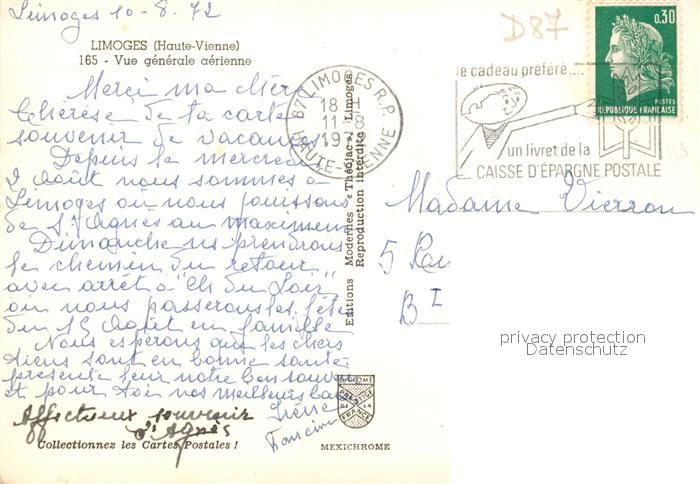 Limoges 10-8.72
D87
LIMOGES (Haute-Vienne)
165 - Vue générale aérienne
Merci ma chère
Thérèse de ta carte
souvenir de vacances
Depuis le mercredi
2 Août nous sommes à
Limoges où nous jouissons
de St Agnès au maximum
Dimanche ns prendrons
le chemin du retour
avec arrêt à "Ch du Loir"
où nous passerons les fêtes
du 15 Août en famille
Nous espérons que les chers
tiens sont en bonne santé
présente leur notre bon souvenir
et pour toi nos meilleurs
Affectueux souvenir
d'Agnès
Collectionnez les Cartes Postales !
Editions Modernes "Théojac", Limoges
Reproduction Interdite
MEXICHROME
PRESTIGE
DE LA
FRANCE
87 LIMOGES R.P.
18 H
11-8
19
HAUTE-VIENNE
le cadeau préféré....
un livret de la
CAISSE D'ÉPARGNE POSTALE
0,30
POSTES
REPUBLIQUE FRANÇAISE
Madame Vierron
5
B
privacy protection
Datenschutz